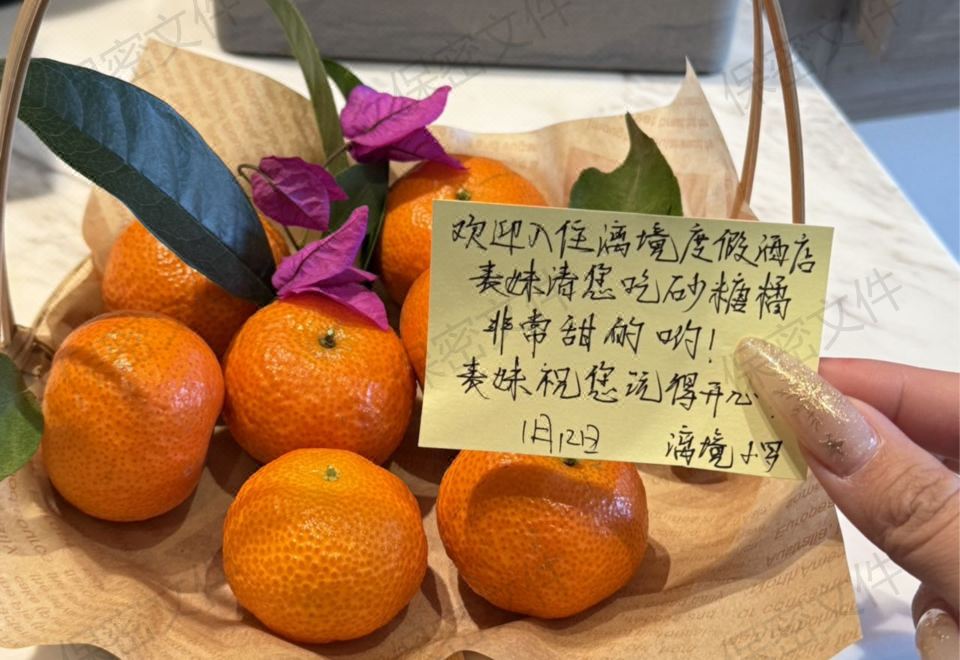 欢迎入住漓境度假酒店
表妹请您吃砂糖橘
非常甜的哟!
表妹祝您玩得开心!
1月12日 漓境小罗
保密文件
保密文件
保密文件
保密文件
保密文件
保密文件
保密文件
保密文件
保密文件